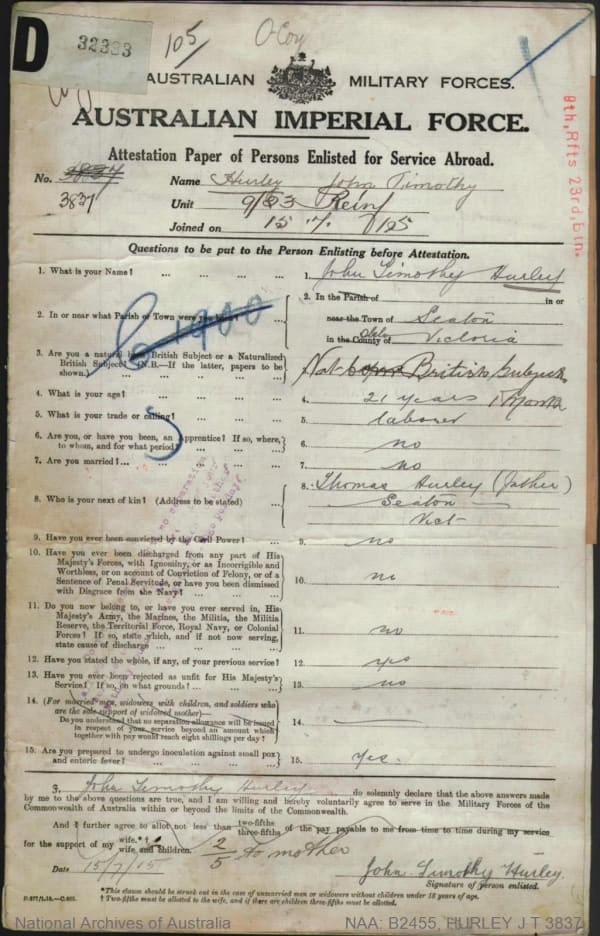 D
32333
105/
AUSTRALIAN MILITARY FORCES.
AUSTRALIAN IMPERIAL FORCE.
Attestation Paper of Persons Enlisted for Service Abroad.
8th, Rfts 23rd, btn.
No. 3837 Name Hurley John Timothy
3837 Unit 9/23 Reinf
Joined on 15 . 7 . /15
Questions to be put to the Person Enlisting before Attestation.
1. What is your Name? ... ... ... ... 1. John Timothy Hurley
2. In or near what Parish or Town were you born? ... 2. In the Parish of in or
near the Town of Seaton
in the County of Victoria
3. Are you a natural born British Subject or a Naturalized
British Subject? (N.B.—If the latter, papers to be
shown.) Nat born British Subject
4. What is your age? ... ... ... ... 4. 21 years 1 Month
5. What is your trade or calling? ... ... ... 5. laborer
6. Are you, or have you been, an Apprentice? If so, where,
to whom, and for what period? 6. no
7. Are you married? ... ... ... ... 7. no
8. Who is your next of kin? (Address to be stated) ... 8. Thomas Hurley (father)
Seaton
Vict
9. Have you ever been convicted by the Civil Power? ... 9. no
10. Have you ever been discharged from any part of His
Majesty's Forces, with Ignominy, or as Incorrigible and
Worthless, or on account of Conviction of Felony, or of a
Sentence of Penal Servitude, or have you been dismissed
with Disgrace from the Navy? ... ... 10. no
11. Do you now belong to, or have you ever served in, His
Majesty's Army, the Marines, the Militia, the Militia
Reserve, the Territorial Force, Royal Navy, or Colonial
Forces? If so, state which, and if not now serving,
state cause of discharge ... ... ... 11. no
12. Have you stated the whole, if any, of your previous service? 12. yes
13. Have you ever been rejected as unfit for His Majesty's
Service? If so, on what grounds? ... ... 13. no
14. (For married men, widowers with children, and soldiers who
are the sole support of widowed mother)—
Do you understand that no separation allowance will be issued
in respect of your service beyond an amount which
together with pay would reach eight shillings per day? 14.
15. Are you prepared to undergo inoculation against small pox
and enteric fever? ... ... ... 15. Yes.
I, John Timothy Hurley do solemnly declare that the above answers made
by me to the above questions are true, and I am willing and hereby voluntarily agree to serve in the Military Forces of the
Commonwealth of Australia within or beyond the limits of the Commonwealth.
And I further agree to allot not less than two-fifths
three-fifths of the pay payable to me from time to time during my service
for the support of my wife.*†
wife and children. 2/5 to mother
Date 15/7/15 John Timothy Hurley
Signature of person enlisted.
*This clause should be struck out in the case of unmarried men or widowers without children under 18 years of age.
† Two-fifths must be allotted to the wife, and if there are children three-fifths must be allotted.
National Archives of Australia NAA: B2455, HURLEY J T 3837